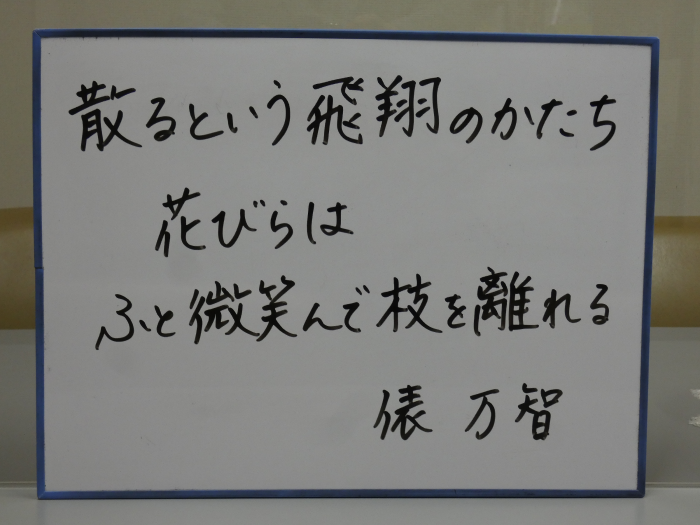 散るという飛翔のかたち
花びらは
ふと微笑んで枝を離れる
俵 万智